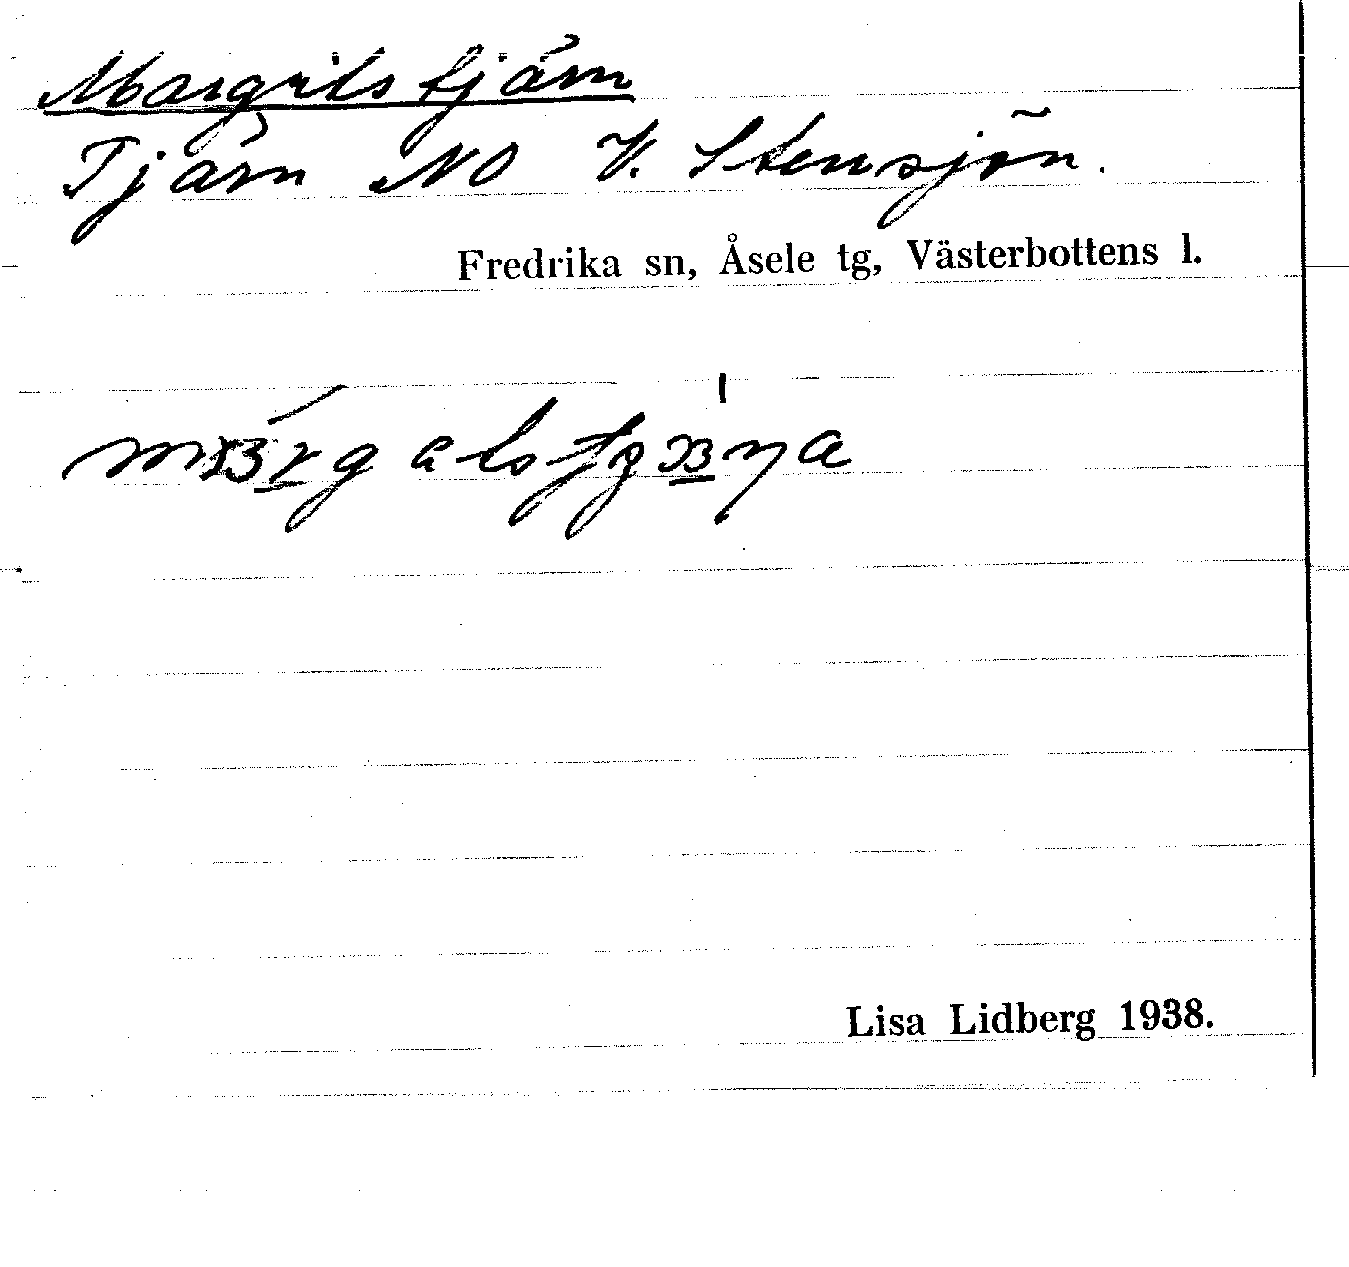 Margritstjärn
Tjärn NO V. Stensjön.
Fredrika sn, Åsele tg, Västerbottens l.
Lisa Lidberg 1938.